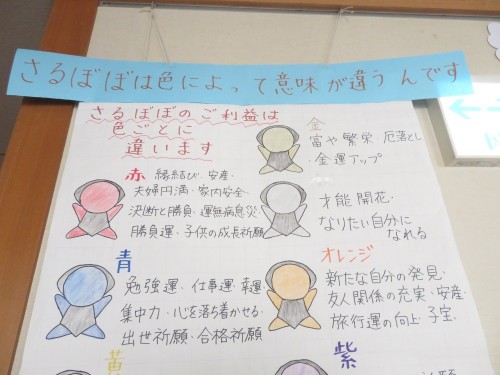 さるぼぼは色によって意味が違うんです
さるぼぼのご利益は
色ごとに
違います
赤 縁結び・安産・
夫婦円満・家内安全・
決断と勝負・運無病息災・
勝負運・子供の成長祈願
青
勉強運・仕事運・幸運
集中力・心を落ち着かせる・
出世祈願・合格祈願
黄
金
富や繁栄 厄落とし
・金運アップ
才能開花・
なりたい自分に
なれる
オレンジ
新たな自分の発見・
友人関係の充実・安産・
旅行運の向上・子宝・
紫